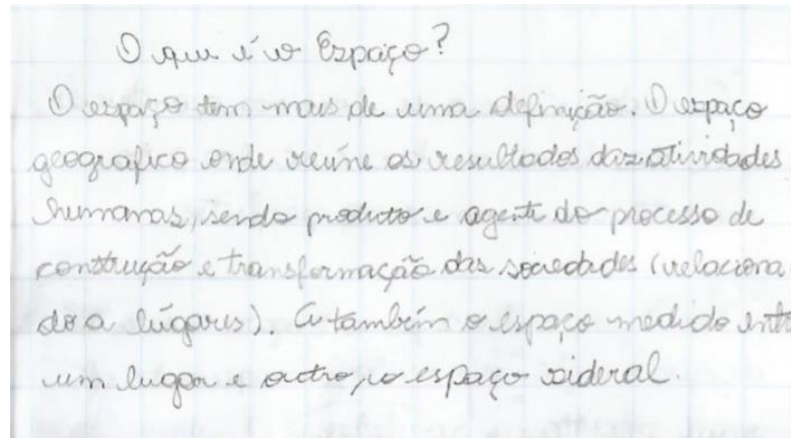 O que é o Espaço?
O espaço tem mais de uma definição. O espaço
geografico onde reúne os resultados das atividades
humanas, sendo produto e agente do processo de
construção e transformação das sociedades (relaciona
do a lúgares). A também o espaço medido entr
um lugar e outro, o espaço sideral.